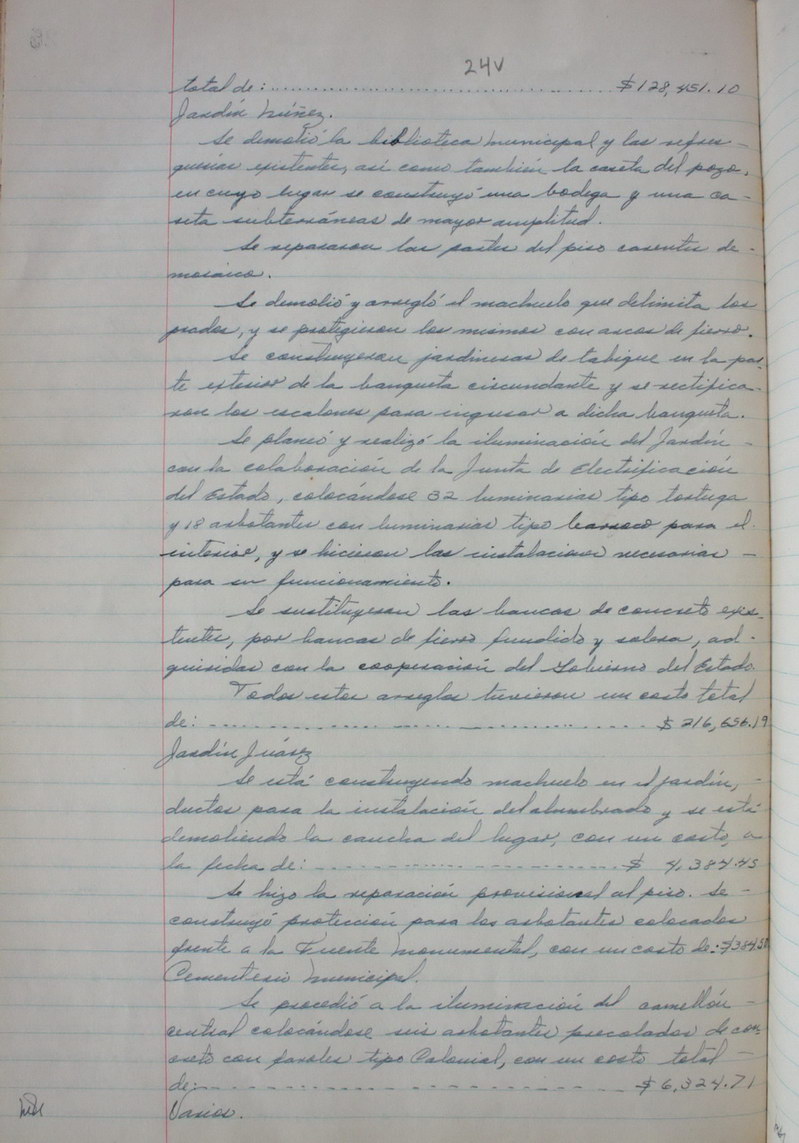 24V
total de:.............................................$128,451.10
Jardín Núñez.
Se demolió la biblioteca Municipal y las refres-
querías existentes, así como también la caseta del pozo,
en cuyo lugar se construyó una bodega y una ca-
seta subterráneas de mayor amplitud.
Se repararon las partes del piso carentes de-
mosaico.
Se demolió y arregló el machuelo que delimita los
prados, y se protegieron los mismos con arcos de fierro.
Se construyeron jardineras de tabique en la par-
te exterior de la banqueta circundante y se rectifica-
ron los escalones para ingresar a dicha banqueta.
Se planeó y realizó la iluminación del Jardín-
con la colaboración de la Junta de Electrificación
del Estado, colocándose 32 luminarias tipo tortuga
y 18 arbotantes con luminarias tipo barroco para el
interior, y se hicieron las instalaciones necesarias-
para su funcionamiento.
Se sustituyeron las bancas de concreto exis-
tentes, por bancas de fierro fundido y solera, ad-
quiridas con la cooperación del Gobierno del Estado.
Todos estos arreglos tuvieron un costo total
de:-------------------------$216,656.19
Jardín Juárez
Se está construyendo machuelo en el jardín,-
ductos para la instalación del alumbrado y se está
demoliendo la cancha del lugar, con un costo, a
la fecha de:-----------------$ 4,384.45
Se hizo la reparación provisional al piso. Se-
construyó protección para los arbotantes colocados
frente a la Fuente Monumental, con un costo de:-$384.50
Cementerio Municipal.
Se procedió a la iluminación del camellón-
central colocándose seis arbotantes precolados de con-
creto con faroles tipo Colonial, con un costo total-
de:-------------------------$6,324.71
Varios.